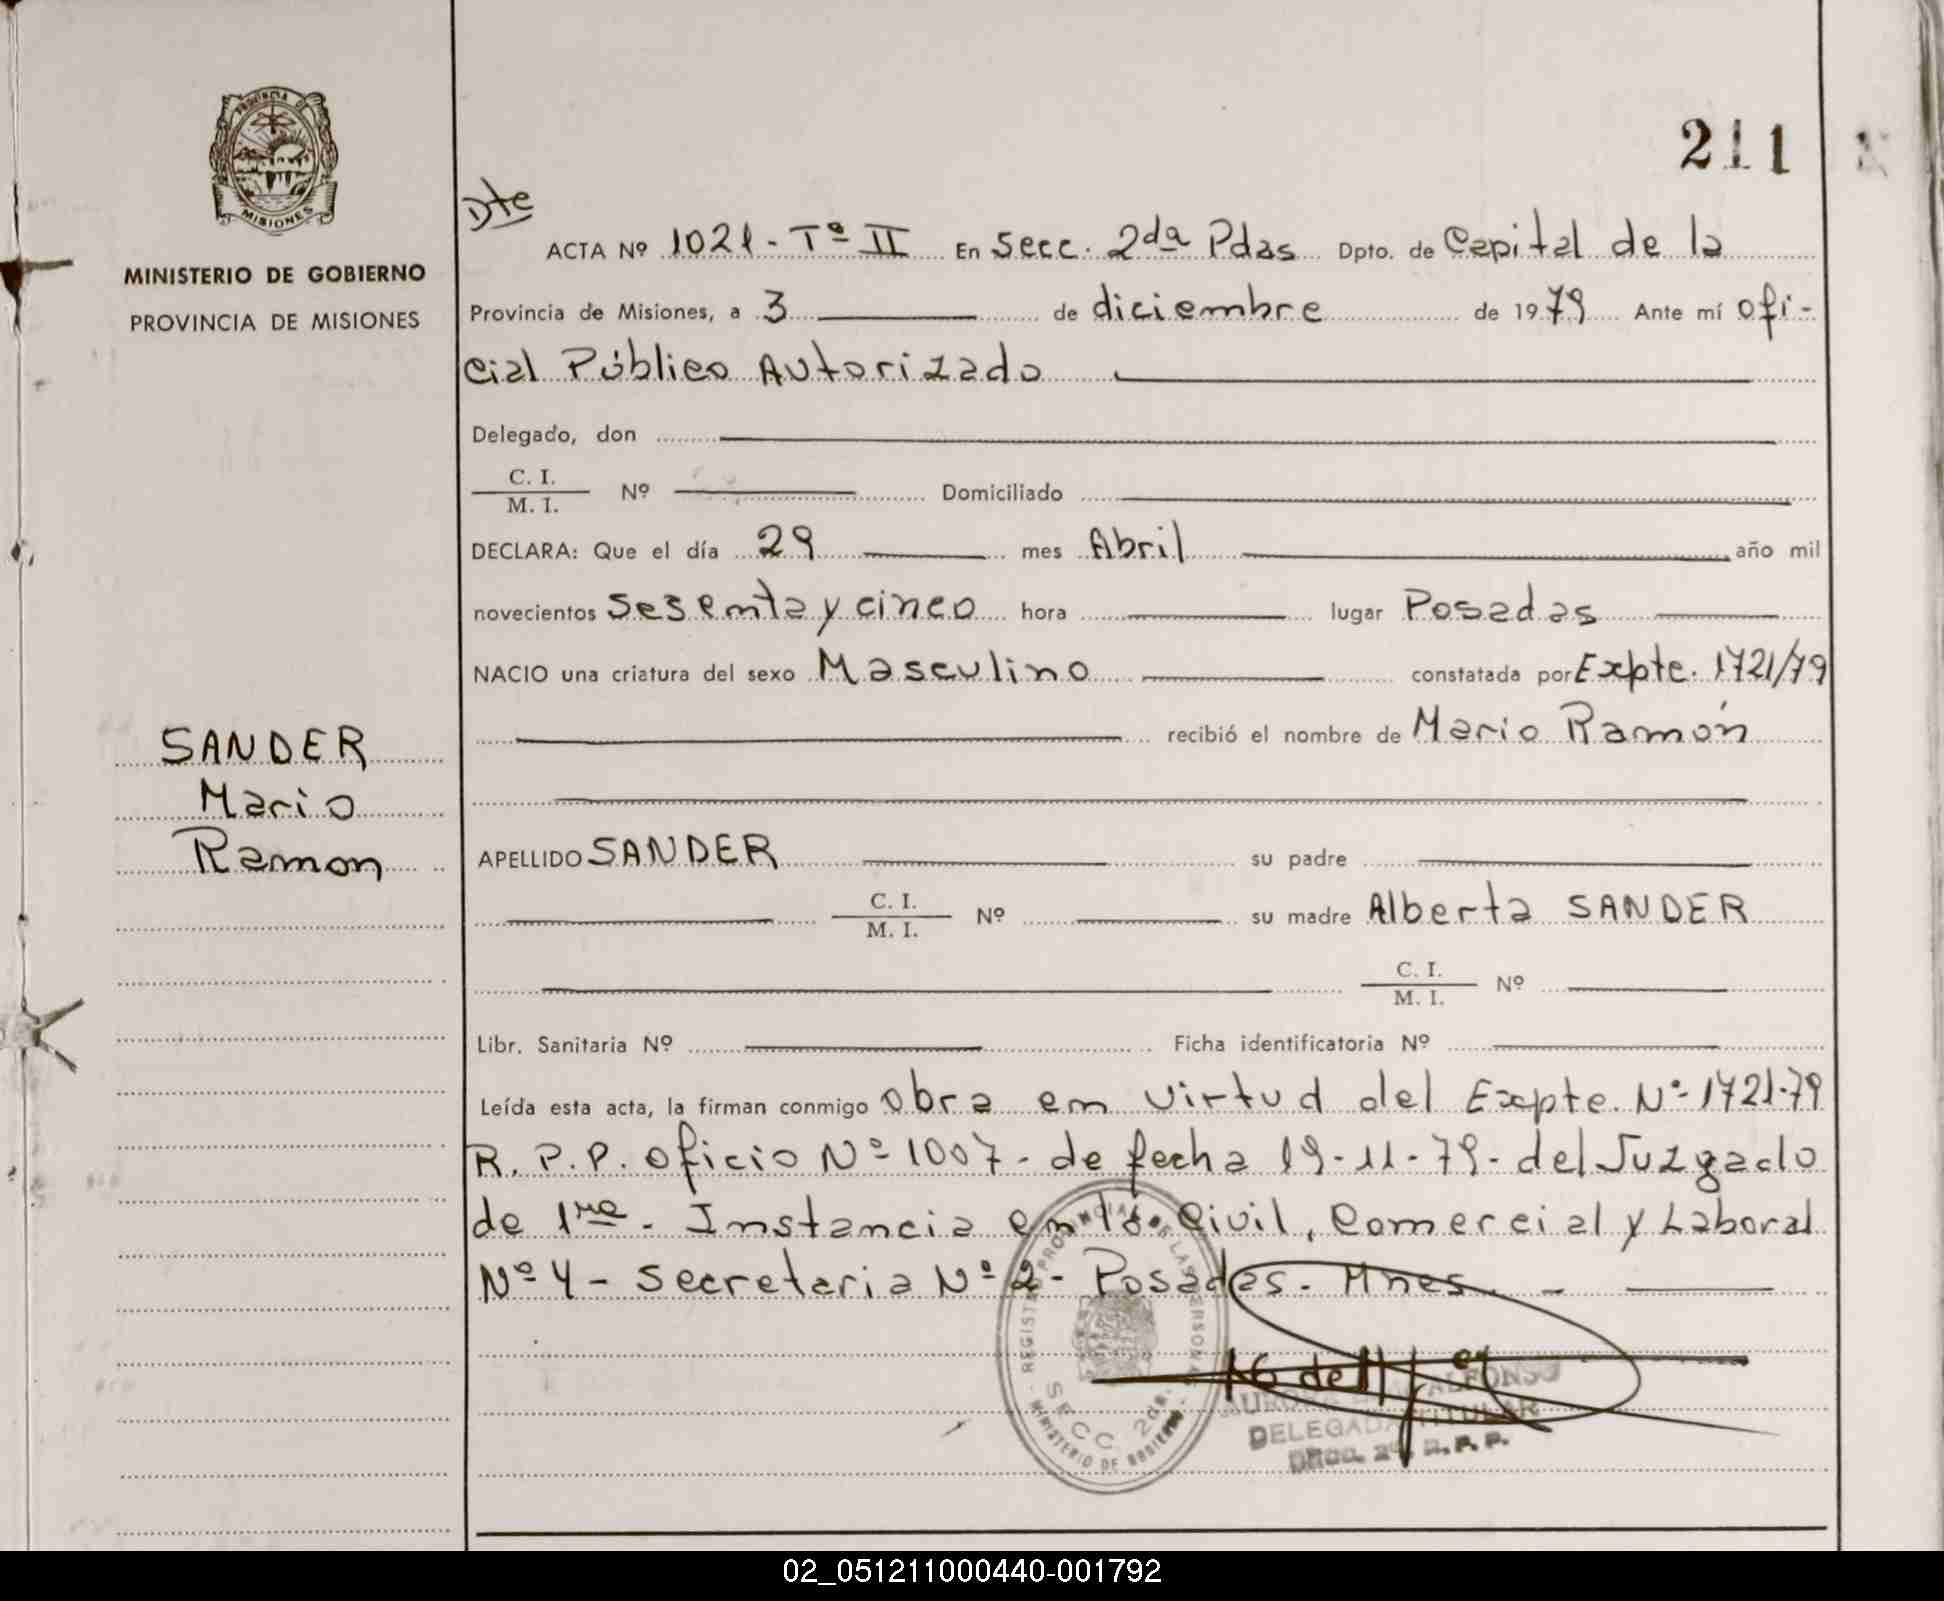 PROVINCIA DE
MISIONES
MINISTERIO DE GOBIERNO
PROVINCIA DE MISIONES
SANDER
Mario
Ramon
211
Dte
ACTA Nº 1021 - Tº II En Secc. 2da Pdas Dpto. de Capital de la
Provincia de Misiones, a 3 de diciembre de 1979 Ante mí ofi-
cial Público Autorizado
Delegado, don
C. I.
M. I. Nº Domiciliado
DECLARA: Que el día 29 mes Abril año mil
novecientos Sesenta y cinco hora lugar Posadas
NACIO una criatura del sexo Masculino constatada por Expte. 1721/79
recibió el nombre de Mario Ramón
APELLIDO SANDER su padre
C. I.
M. I. Nº su madre Alberta SANDER
C. I.
M. I. Nº
Libr. Sanitaria Nº Ficha identificatoria Nº
Leída esta acta, la firman conmigo obra en virtud del Expte. Nº 1721-79
R. P. P. oficio Nº 1007 - de fecha 19-11-79 - del Juzgado
de 1ra - Instancia en lo Civil, Comercial y Laboral
Nº 4 - Secretaria Nº 2 - Posadas - Mnes. -
REGISTRO PROVINCIAL DE LAS PERSONAS
SECC. 2da.
MINISTERIO DE GOBIERNO
AURORA ALFONSO
DELEGADA TITULAR
2ª R. P. P.
02_051211000440-001792